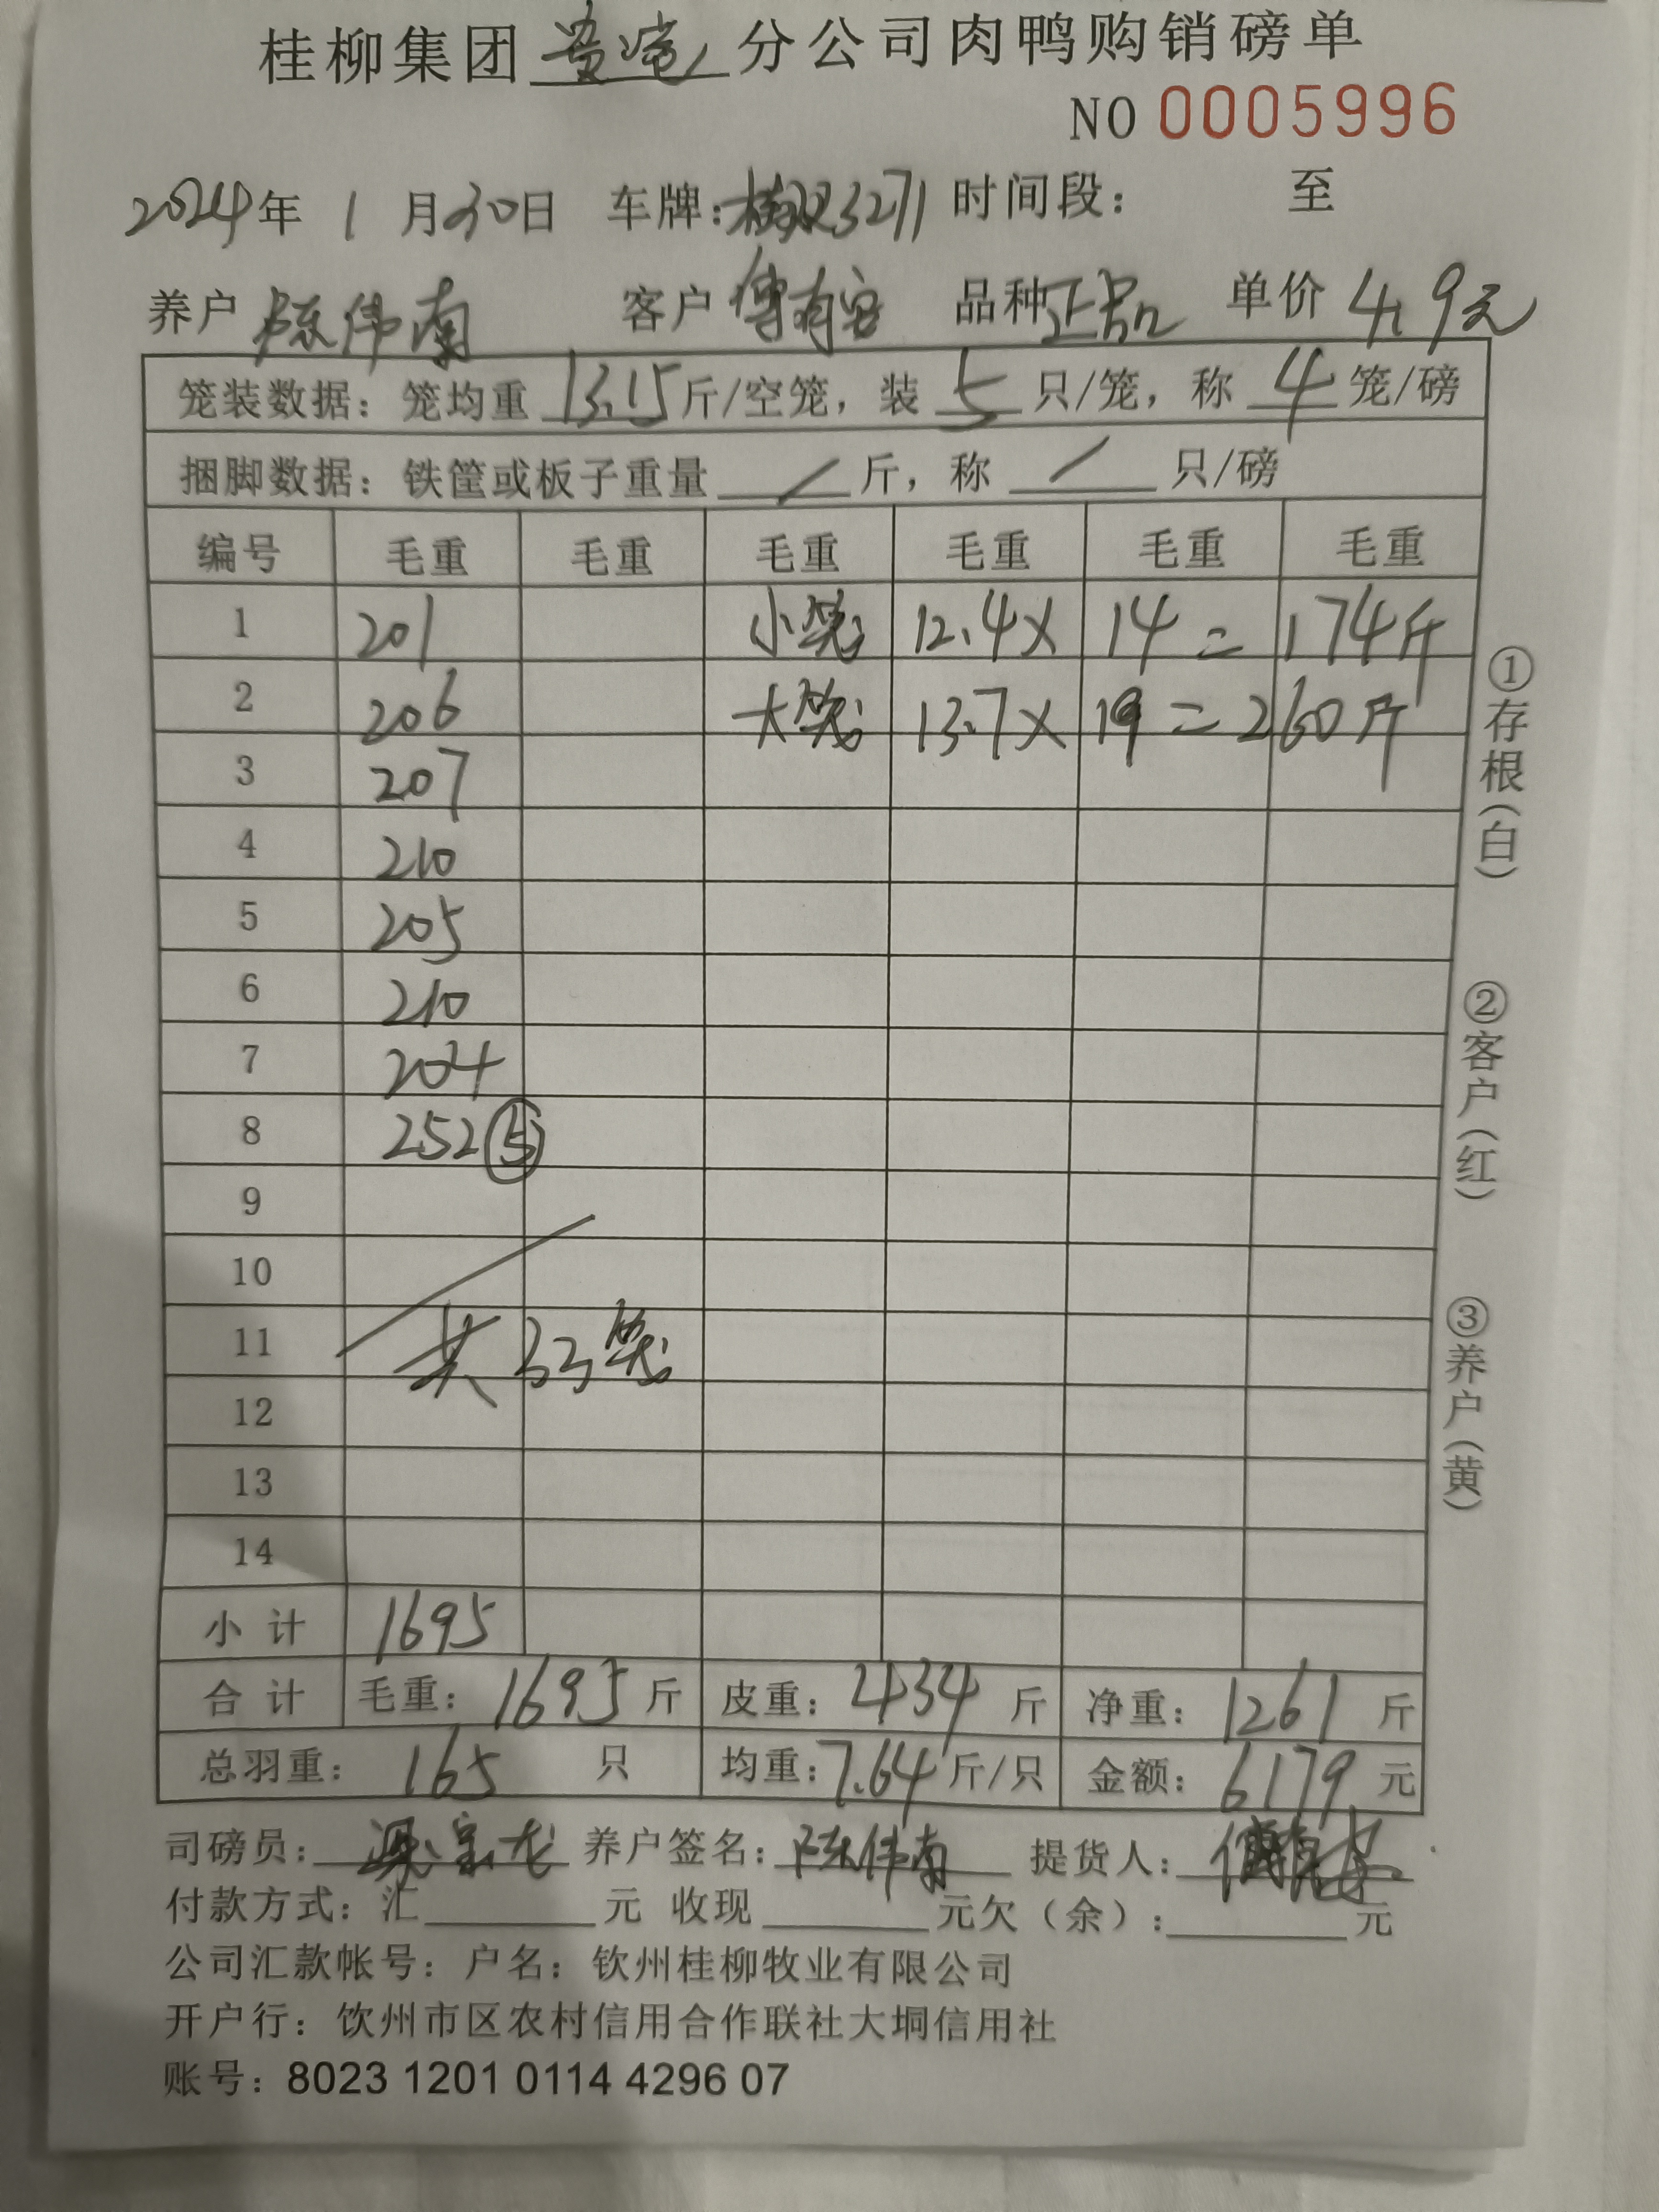 桂柳集团 分公司肉鸭购销磅单
NO 0005996
2024年 1 月30日 车牌: 3271 时间段: 至
养户 陈伟南 客户 傅有客 品种 正品 单价 4.9元
笼装数据: 笼均重 13.15 斤/空笼, 装 5 只/笼, 称 4 笼/磅
捆脚数据: 铁筐或板子重量 / 斤, 称 / 只/磅
编号 毛重 毛重 毛重 毛重 毛重 毛重
1 201 小笼 12.4× 14 = 174斤
2 206 大笼 13.7× 19 = 260斤
3 207
4 210
5 205
6 210
7 204
8 252 ⑤
9
10
11 共 33笼
12
13
14
小 计 1695
合 计 毛重: 1695 斤 皮重: 434 斤 净重: 1261 斤
总羽重: 165 只 均重: 7.64 斤/只 金额: 6179 元
司磅员: 养户签名: 陈伟南 提货人:
付款方式: 汇 元 收现 元欠(余): 元
公司汇款帐号: 户名: 钦州桂柳牧业有限公司
开户行: 饮州市区农村信用合作联社大垌信用社
账号: 8023 1201 0114 4296 07
①存根(白)
②客户(红)
③养户(黄)